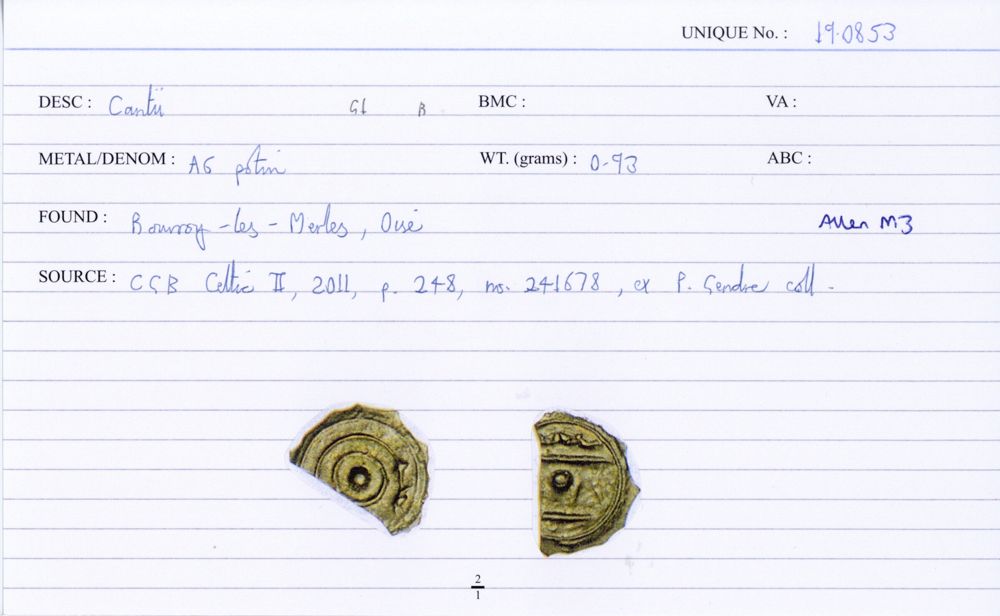 UNIQUE No. : 19.0853
DESC : Cantii G1 B BMC : VA :
METAL/DENOM : AG potin WT. (grams) : 0.93 ABC :
FOUND : -les-Merles, Oise Allen M3
SOURCE : CGB Celtic II, 2011, p. 248, no. 241678, ex P. Gendre coll.
2
1